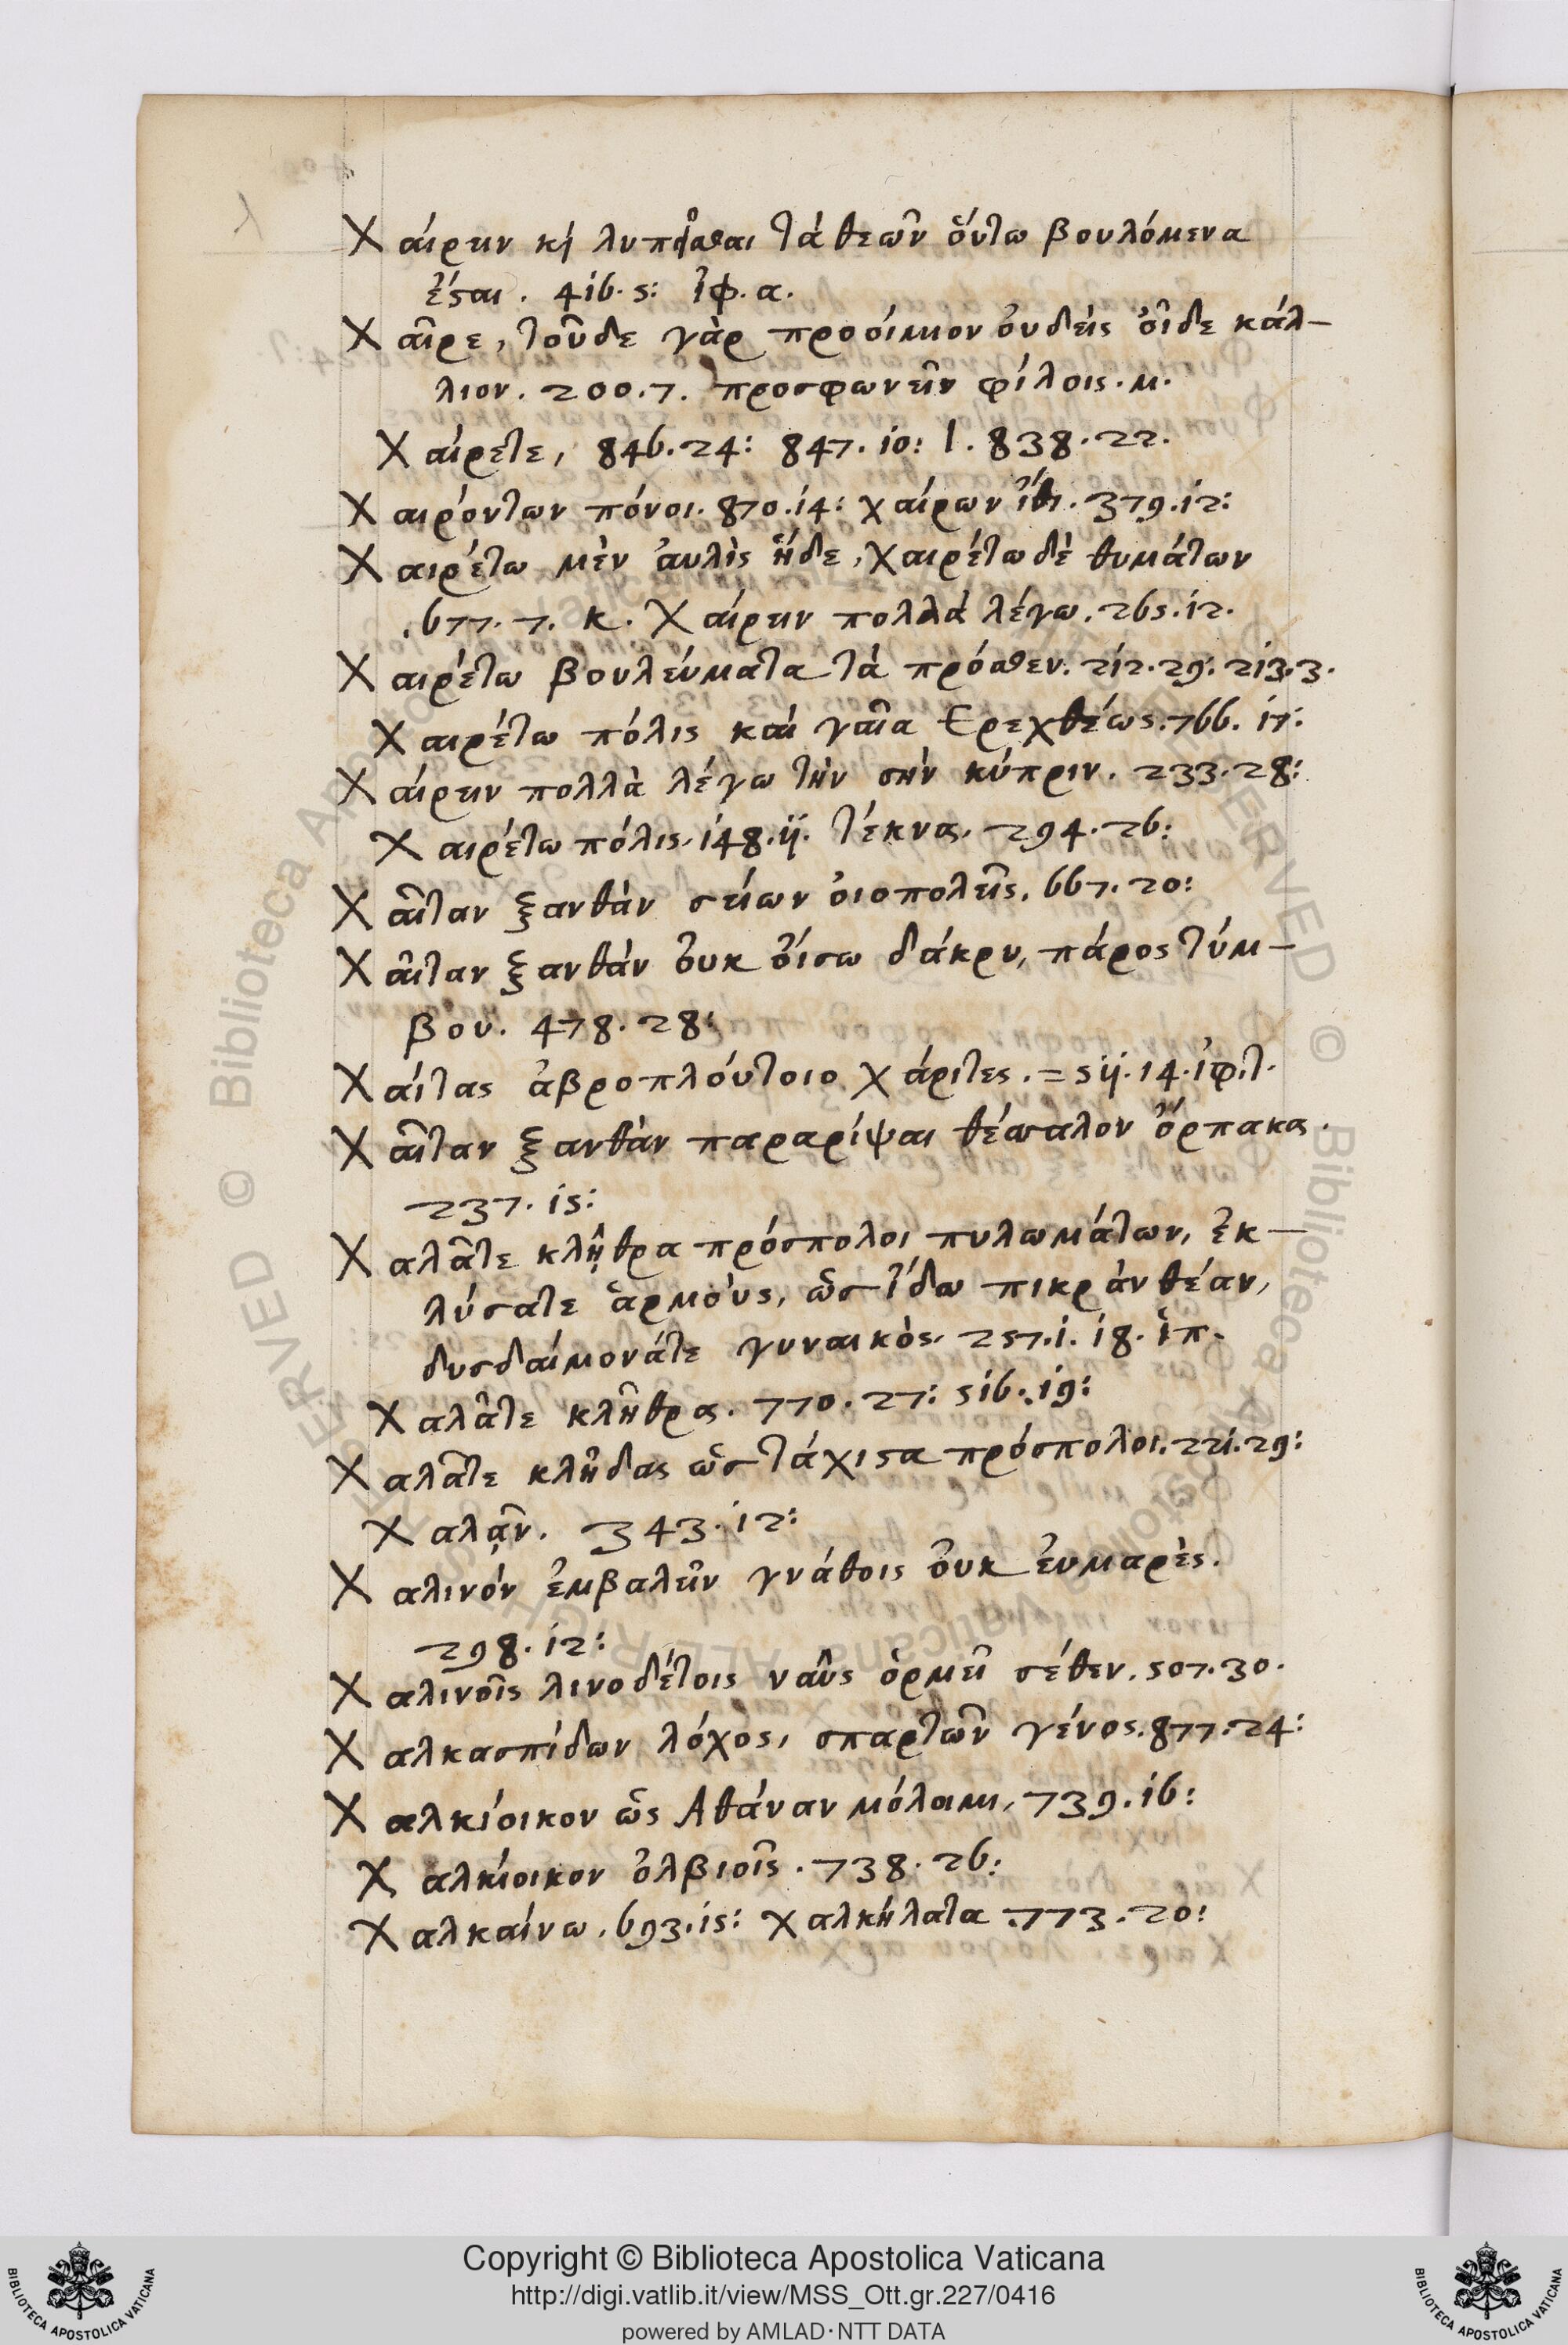 Χαίρειν κὴ λυπῆσθαι τὰ θεῶν ὅυτω βουλόμενα
ἔσται. 416. 5: ἰφ. α.
Χαῖρε, τοῦδε γὰρ προοίμιον ὀυδεὶς ὀῖδε κάλ-
λιον. 200. 7. προσφωνεῖν φίλοις. μ.
Χαίρετε, 846. 24: 847. 10: l. 838. 22.
Χαιρόντων πόνοι. 870. 14: χαίρων ἴθι. 379. 12:
Χαιρέτω μὲν ἀυλὶς ἥδε, χαιρέτω δὲ θυμάτων
. 677. 7. κ. Χαίρειν πολλὰ λέγω. 265. 12.
Χαιρέτω βουλεύματα τὰ πρόσθεν. 212. 29. 213. 3.
Χαιρέτω πόλις καὶ γαῖα Ερεχθέως. 766. 17:
Χαίρειν πολλὰ λέγω τὴν σὴν κύπριν. 233. 28:
Χαιρέτω πόλις. 148. 11. τέκνα. 294. 26:
Χαῖταν ξανθὰν σείων ὀιοπολεῖς. 667. 20:
Χαῖταν ξανθὰν ὀυκ ὄισω δάκρυ, πάρος τύμ-
βου. 478. 28:
Χαίτας ἁβροπλούτοιο χάριτες. = 511. 14. ἰφ. τ.
Χαῖταν ξανθὰν παραρίψαι θέσσαλον ὅρπακα.
237. 15:
Χαλᾶτε κλῆθρα πρόσπολοι πυλωμάτων, ἐκ-
λύσατε ἁρμοὺς, ὡς ἴδω πικρὰν θέαν,
δυσδαίμονάτε γυναικὸς. 257. 1. 18. ἱπ.
Χαλᾶτε κλῆθρα. 770. 27: 516. 19:
Χαλᾶτε κλῆδας ὡς τάχιστα πρόσπολοι. 221. 29:
Χαλᾷν. 343. 12:
Χαλινόν ἐμβαλεῖν γνάθοις ὀυκ ἐυμαρὲς.
298. 12:
Χαλινοῖς λινοδέτοις ναῦς ὁρμεῖ σέθεν. 507. 30.
Χαλκασπίδων λόχος, σπαρτῶν γένος. 877. 24:
Χαλκίοικον ὡς Αθάναν μόλοιμι, 739. 16:
Χαλκίοικον ὀλβιοῖς. 738. 26:
Χαλκαίνω. 693. 15: χαλκήλατα. 773. 20:
Copyright © Biblioteca Apostolica Vaticana
http://digi.vatlib.it/view/MSS_Ott.gr.227/0416
powered by AMLAD·NTT DATA